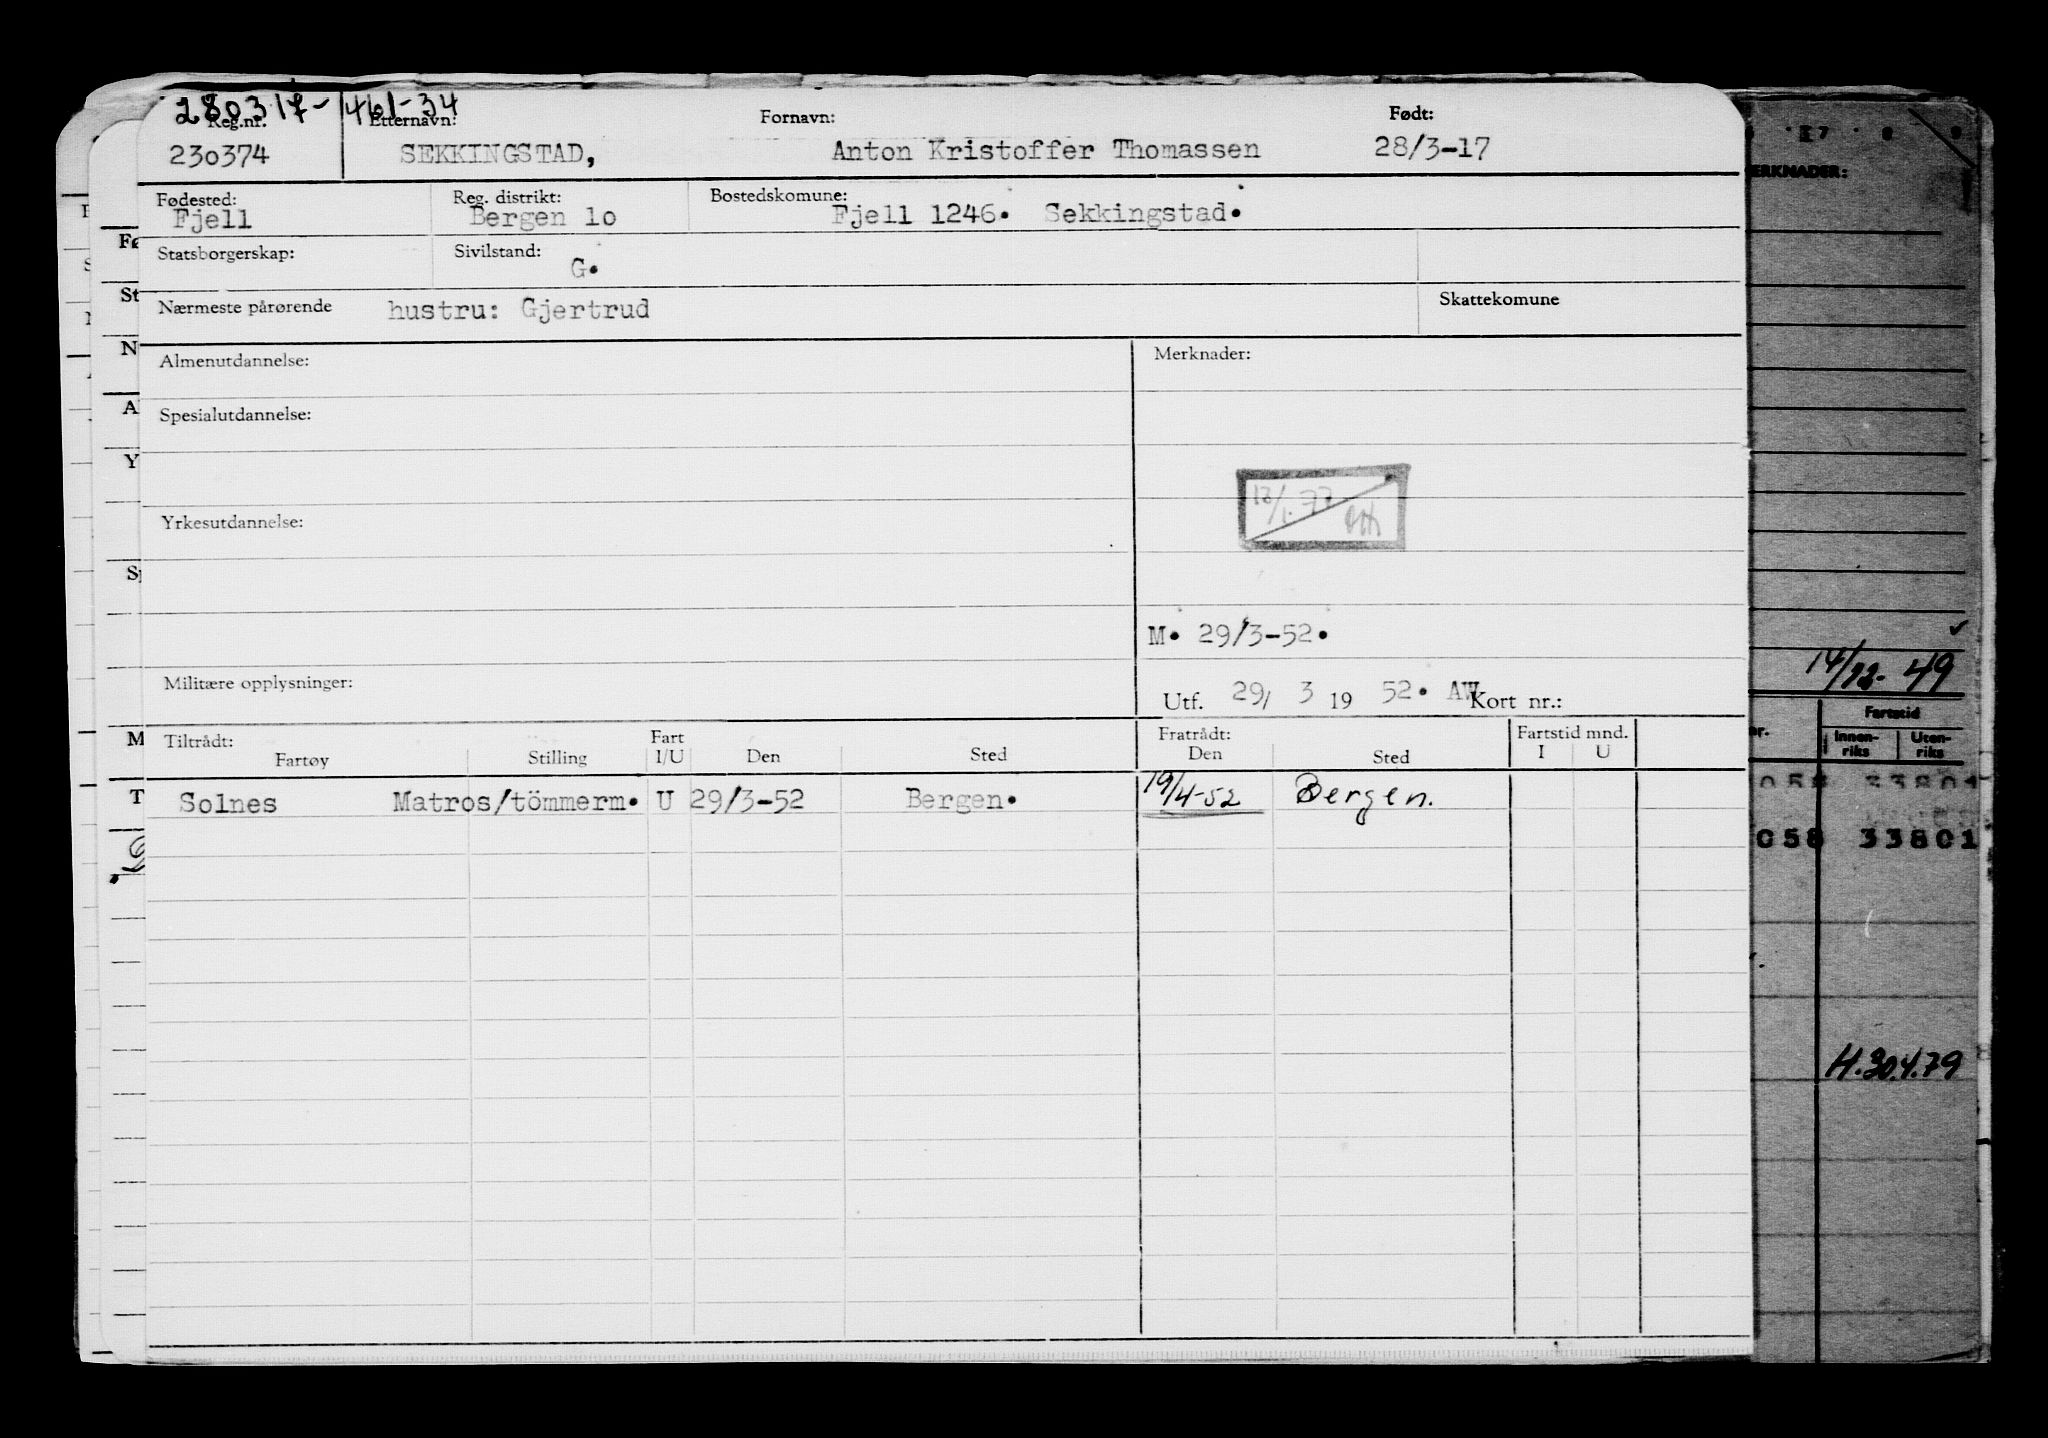 280317-461-34
Reg.nr. Etternavn: Fornavn: Født:
230374 SEKKINGSTAD, Anton Kristoffer Thomassen 28/3-17
Fødested: Reg. distrikt: Bostedskomune:
Fjell Bergen 1o Fjell 1246. Sekkingstad.
Statsborgerskap: Sivilstand:
G.
Nærmeste pårørende hustru: Gjertrud Skattekomune
Almenutdannelse: Merknader:
Spesialutdannelse:
Yrkesutdannelse:
M. 29/3-52.
Militære opplysninger:
Utf. 29/ 3 19 52. AW Kort nr.:
Tiltrådt: Fart Fratrådt: Fartstid mnd.
Fartøy Stilling I/U Den Sted Den Sted I U
Solnes Matros/tömmerm. U 29/3-52 Bergen. 19/4-52 Bergen.
ERKNADER:
14/12-49
Fartstid
Innen- Uten-
riks riks
058 33801
058 33801
H.30.4.79